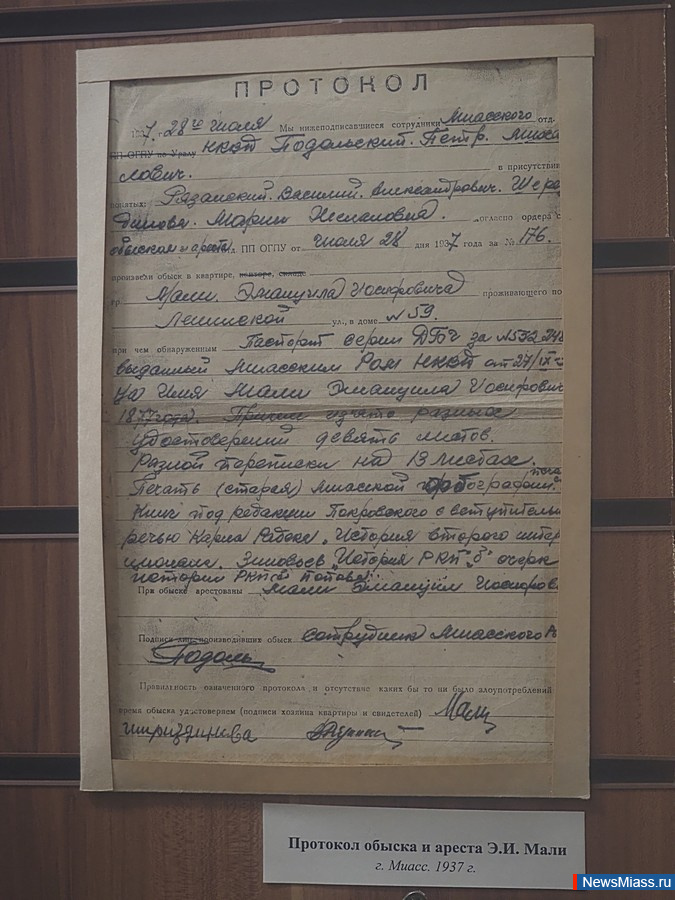 ПРОТОКОЛ
1937 г. 28го июля Мы нижеподписавшиеся сотрудники Миасского отд.
ПП ОГПУ по Уралу НКВД Подольский. Петр. Миха
лович. в присутствии
понятых: Рязанский. Василий. Александрович.
Мария согласно ордера с
обыском и ареста д. ПП ОГПУ от июля 28 дня 1937 года за № 176.
произвели обыск в квартире, конторе, складе
гр. Мали. Эмануила Иосифовича проживающего по
Ленинской ул., в доме № 59.
при чем обнаруженным Паспорт серии за № 532
выданный Миасским НКВД от 27/IX
на имя Мали Эмануила Иосифович
1877 года. изъято разных
удостоверений девять листов.
Разной переписки на 13 листах.
Печать (старая) Миасской
Книг под редакции Покровского с вступитель
речью Карла Радека „История второго интер
ционала. Зиновьев „История РКП" б" очерк
истории РКП Попова
При обыске арестованы Мали Эмануил Иосифов.
Подписи лиц, производивших обыск сотрудник Миасского
Подоль
Правильность означенного протокола и отсутствие каких бы то ни было злоупотреблений
время обыска удостоверяем (подписи хозяина квартиры и свидетелей) Мали
Протокол обыска и ареста Э.И. Мали
г. Миасс. 1937 г.
NewsMiass.ru